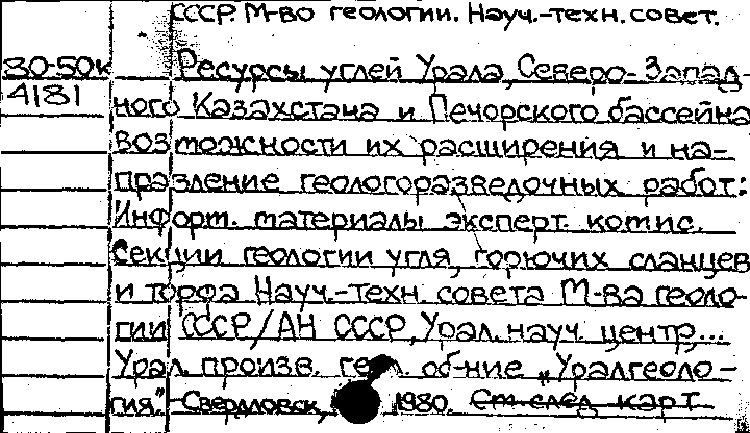 СССР. М-во геологии. Науч.-техн. совет.
80-50к Ресурсы углей Урала, Северо-Запад-
4181 ного Казахстана и Печорского бассейна
возможности их расширения и на-
правление геологоразведочных работ:
Информ. материалы эксперт. комис.
секции геологии угля, горючих сланцев
и торфа Науч.-техн. совета М-ва геоло-
гии СССР/АН СССР, Урал. науч. центр...
Урал. произв. геол. об-ние „Уралгеоло-
гия". Свердловск, 1980. См след карт